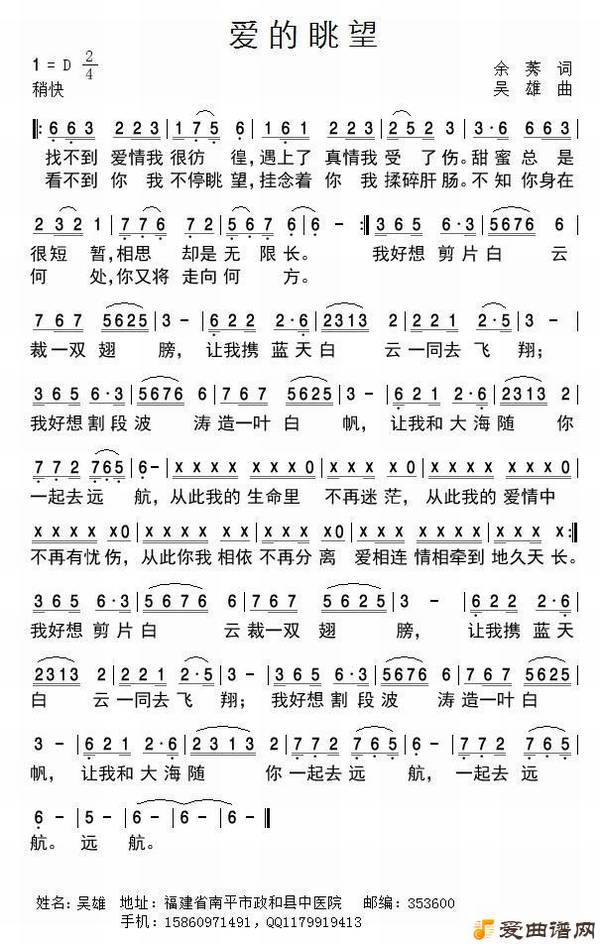 爱的眺望
1=D 2/4
余莠词
稍快
吴雄曲
‖: 6 6 3 2 2 3 | 1 7 5 6 | 1 6 1 2 2 3 | 2 5 2 3 | 3·6 6 6 3 |
找不到 爱情我 很彷 徨,遇上了 真情我 受 了伤。甜蜜 总 是
看不到 你 我 不停眺 望,挂念着 你 我 揉碎肝 肠。不 知 你身在
2 3 2 1 | 7 7 6 7 2 | 5 6 7 6 | 6 - :‖ 3 6 5 6·3 | 5676 6 |
很短 暂,相思 却是 无 限长。 我好想 剪片 白 云
何 处,你又将 走向 何 方。
7 6 7 5625 | 3 - | 6 2 2 2·6 | 2313 2 | 2 2 1 2·5 | 3 - |
裁一双 翅 膀, 让我携 蓝天 白 云 一同去 飞 翔;
3 6 5 6·3 | 5676 6 | 7 6 7 5625 | 3 - | 6 2 1 2·6 | 2313 2 |
我好想 割段 波 涛 造一叶 白 帆, 让我和 大海 随 你
7 7 2 765 | 6 - | x x x x | x x x 0 | x x x x x 0 | x x x x | x x x 0 |
一起去 远 航, 从此我的 生命里 不再迷 茫, 从此我的 爱情中
x x x x x 0 | x x x x | x x x x x 0 | x x x | x x x | x x x x x :‖
不再有忧 伤, 从此你我 相依不再分 离 爱相连 情相牵到 地久天 长。
3 6 5 6·3 | 5 6 7 6 6 | 7 6 7 5 6 2 5 | 3 - | 6 2 2 2·6 |
我好想 剪片 白 云 裁一双 翅 膀, 让我携 蓝天
2313 2 | 2 2 1 2·5 | 3 - | 3 6 5 6·3 | 5676 6 | 7 6 7 5625 |
白 云 一同去 飞 翔; 我好想 割段 波 涛 造一叶 白
3 - | 6 2 1 2·6 | 2 3 1 3 2 | 7 7 2 7 6 5 | 6 - | 7 7 2 7 6 5 |
帆, 让我和 大海 随 你 一起去 远 航, 一起去 远
6 - | 5 - | 6 - | 6 - | 6 - ‖
航。 远 航。
姓名:吴雄 地址:福建省南平市政和县中医院 邮编:353600
手机:15860971491,QQ1179919413
爱曲谱网